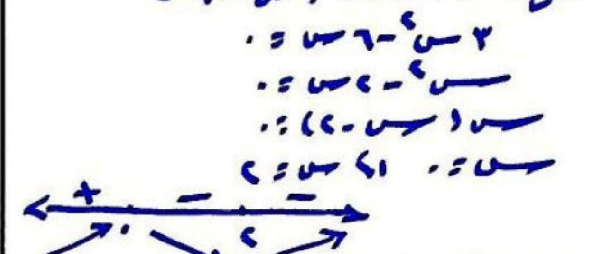 ٣س² - ٦س = ٠
س² - ٢س = ٠
س (س - ٢) = ٠
س = ٠ أو س = ٢
+ − −
٠ ٢